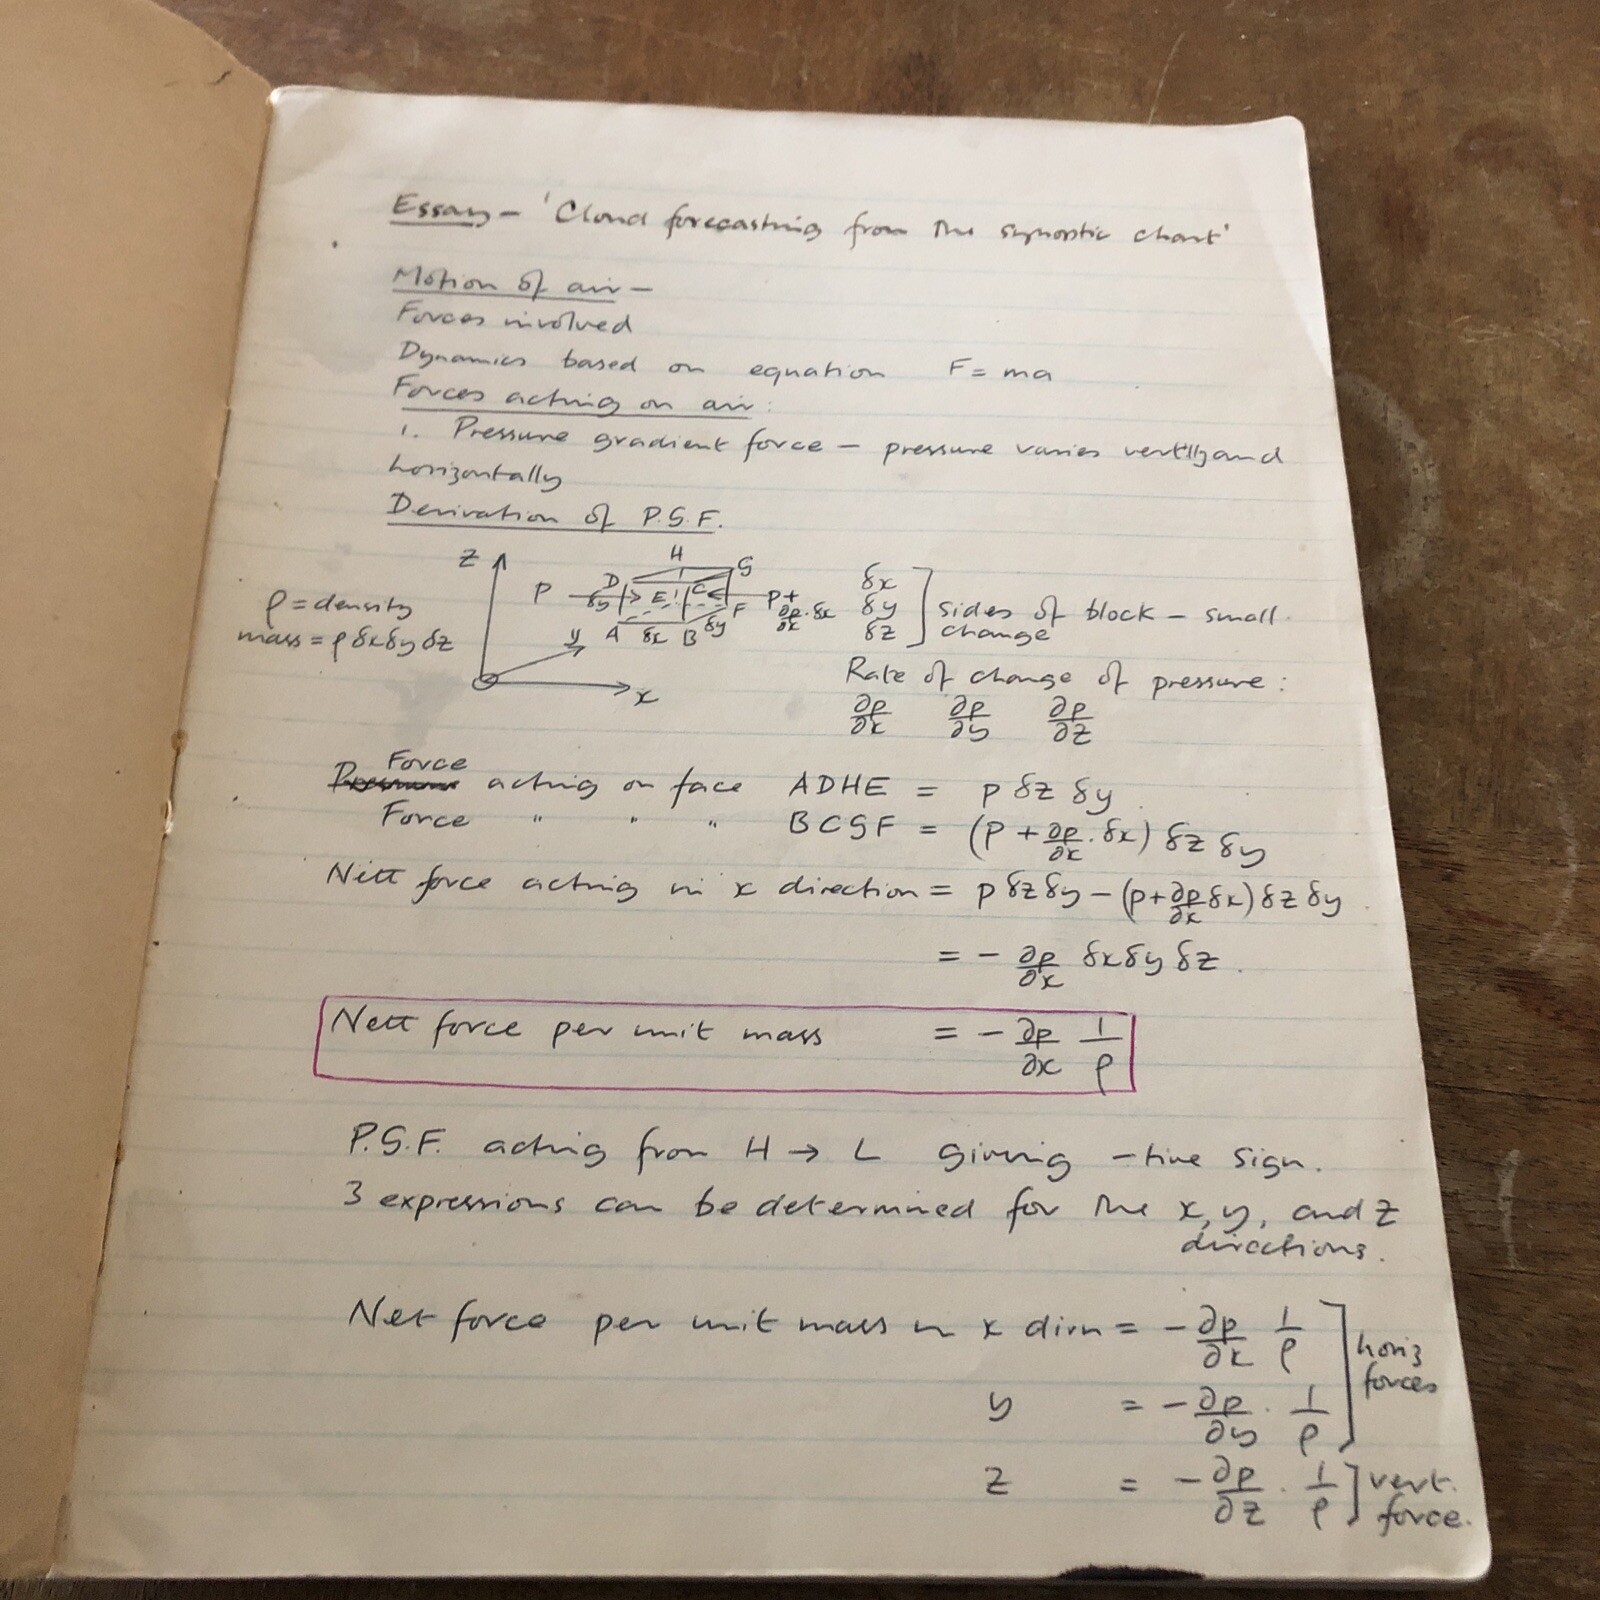 Essay – 'Cloud forecasting from the synoptic chart'
Motion of air –
Forces involved
Dynamics based on equation F = ma
Forces acting on air :
1. Pressure gradient force – pressure varies vert'lly and
horizontally
Derivation of P.G.F.
ρ = density
mass = ρ δx δy δz
z
y
x
H
G
D
C
E
F
A
B
δy
δx
δy
P
P + ∂p/∂x . δx
δx
δy
δz
] sides of block – small
change
Rate of change of pressure :
∂p/∂x ∂p/∂y ∂p/∂z
Force
Pressure acting on face ADHE = p δz δy
Force " " " BCGF = (p + ∂p/∂x . δx) δz δy
Nett force acting in x direction = p δz δy – (p + ∂p/∂x δx) δz δy
= – ∂p/∂x δx δy δz .
Nett force per unit mass = – ∂p/∂x 1/ρ
P.G.F. acting from H → L giving –tive sign.
3 expressions can be determined for the x, y, and z
directions.
Net force per unit mass in x dirn = – ∂p/∂x 1/ρ
y = – ∂p/∂y . 1/ρ
] horiz
forces
z = – ∂p/∂z . 1/ρ ] vert.
force.